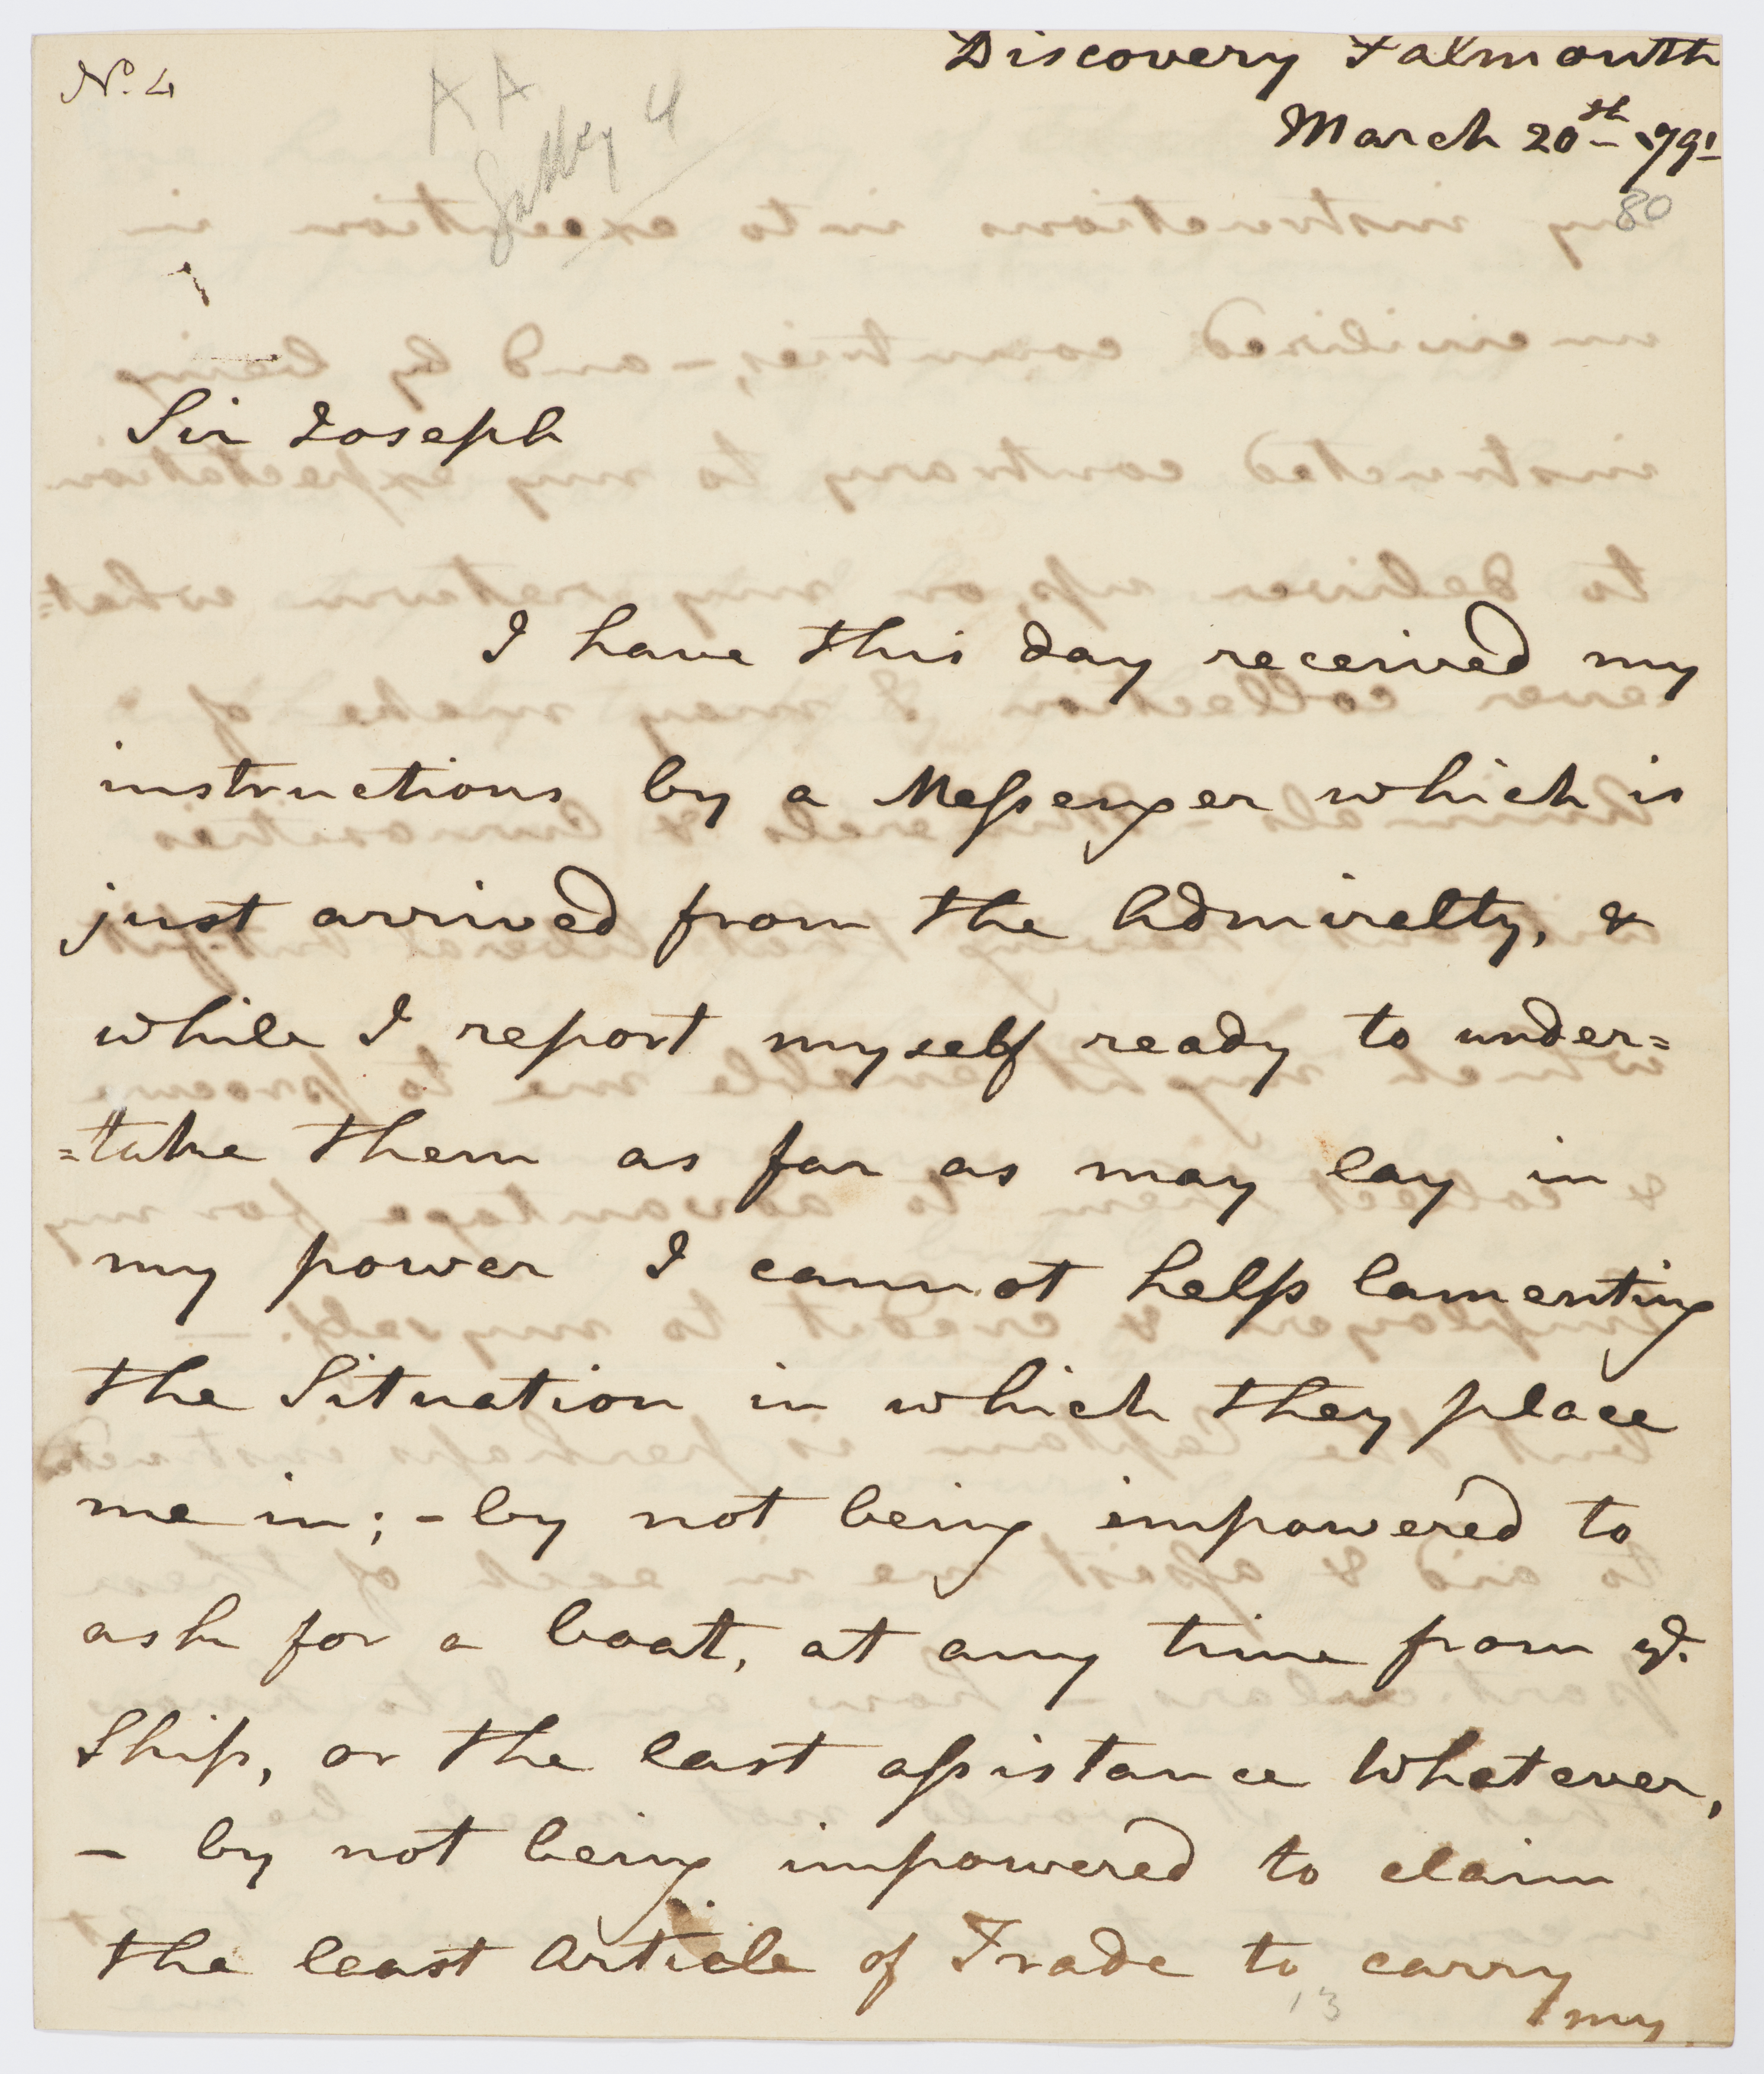 No. 4
AA
4
Discovery Falmouth
March 20th - 791
80
Sir Joseph
I have this day received my
instructions by a Messenger which is
just arrived from the Admirelty, &
while I report myself ready to under=
=take them as far as may lay in
my power I cannot help lamenting
the Situation in which they place
me in; - by not being impowered to
ask for a boat, at any time from ye.
Ship, or the least assistance Whatever,
- by not being impowered to claim
the least Article of Trade to carry
my
13